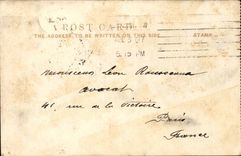 POST CARD
THE ADDRESS TO BE WRITTEN ON THIS SIDE.
STAMP
5.15 PM
Monsieur Léon Rousseau
avocat
41, rue de la Victoire
Paris
France